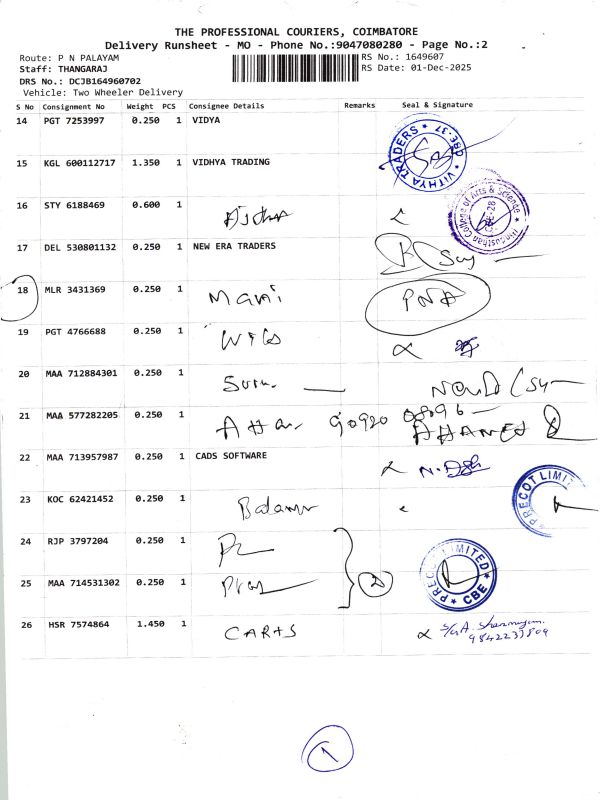 THE PROFESSIONAL COURIERS, COIMBATORE
Delivery Runsheet - MO - Phone No.:9047080280 - Page No.:2
Route: P N PALAYAM
RS No.: 1649607
Staff: THANGARAJ
RS Date: 01-Dec-2025
DRS No.: DCJB164960702
Vehicle: Two Wheeler Delivery
S No Consignment No Weight PCS Consignee Details Remarks Seal & Signature
14 PGT 7253997 0.250 1 VIDYA
VITHYA TRADERS CBE-37
15 KGL 600112717 1.350 1 VIDHYA TRADING
16 STY 6188469 0.600 1
Hindusthan College of Arts & Science
17 DEL 530801132 0.250 1 NEW ERA TRADERS
18 MLR 3431369 0.250 1 Mani PNP
19 PGT 4766688 0.250 1
20 MAA 712884301 0.250 1
21 MAA 577282205 0.250 1 90920 08096
22 MAA 713957987 0.250 1 CADS SOFTWARE
23 KOC 62421452 0.250 1
PRECOT LIMITED
24 RJP 3797204 0.250 1
25 MAA 714531302 0.250 1 2
PRECOT LIMITED CBE
26 HSR 7574864 1.450 1
9842233809
1